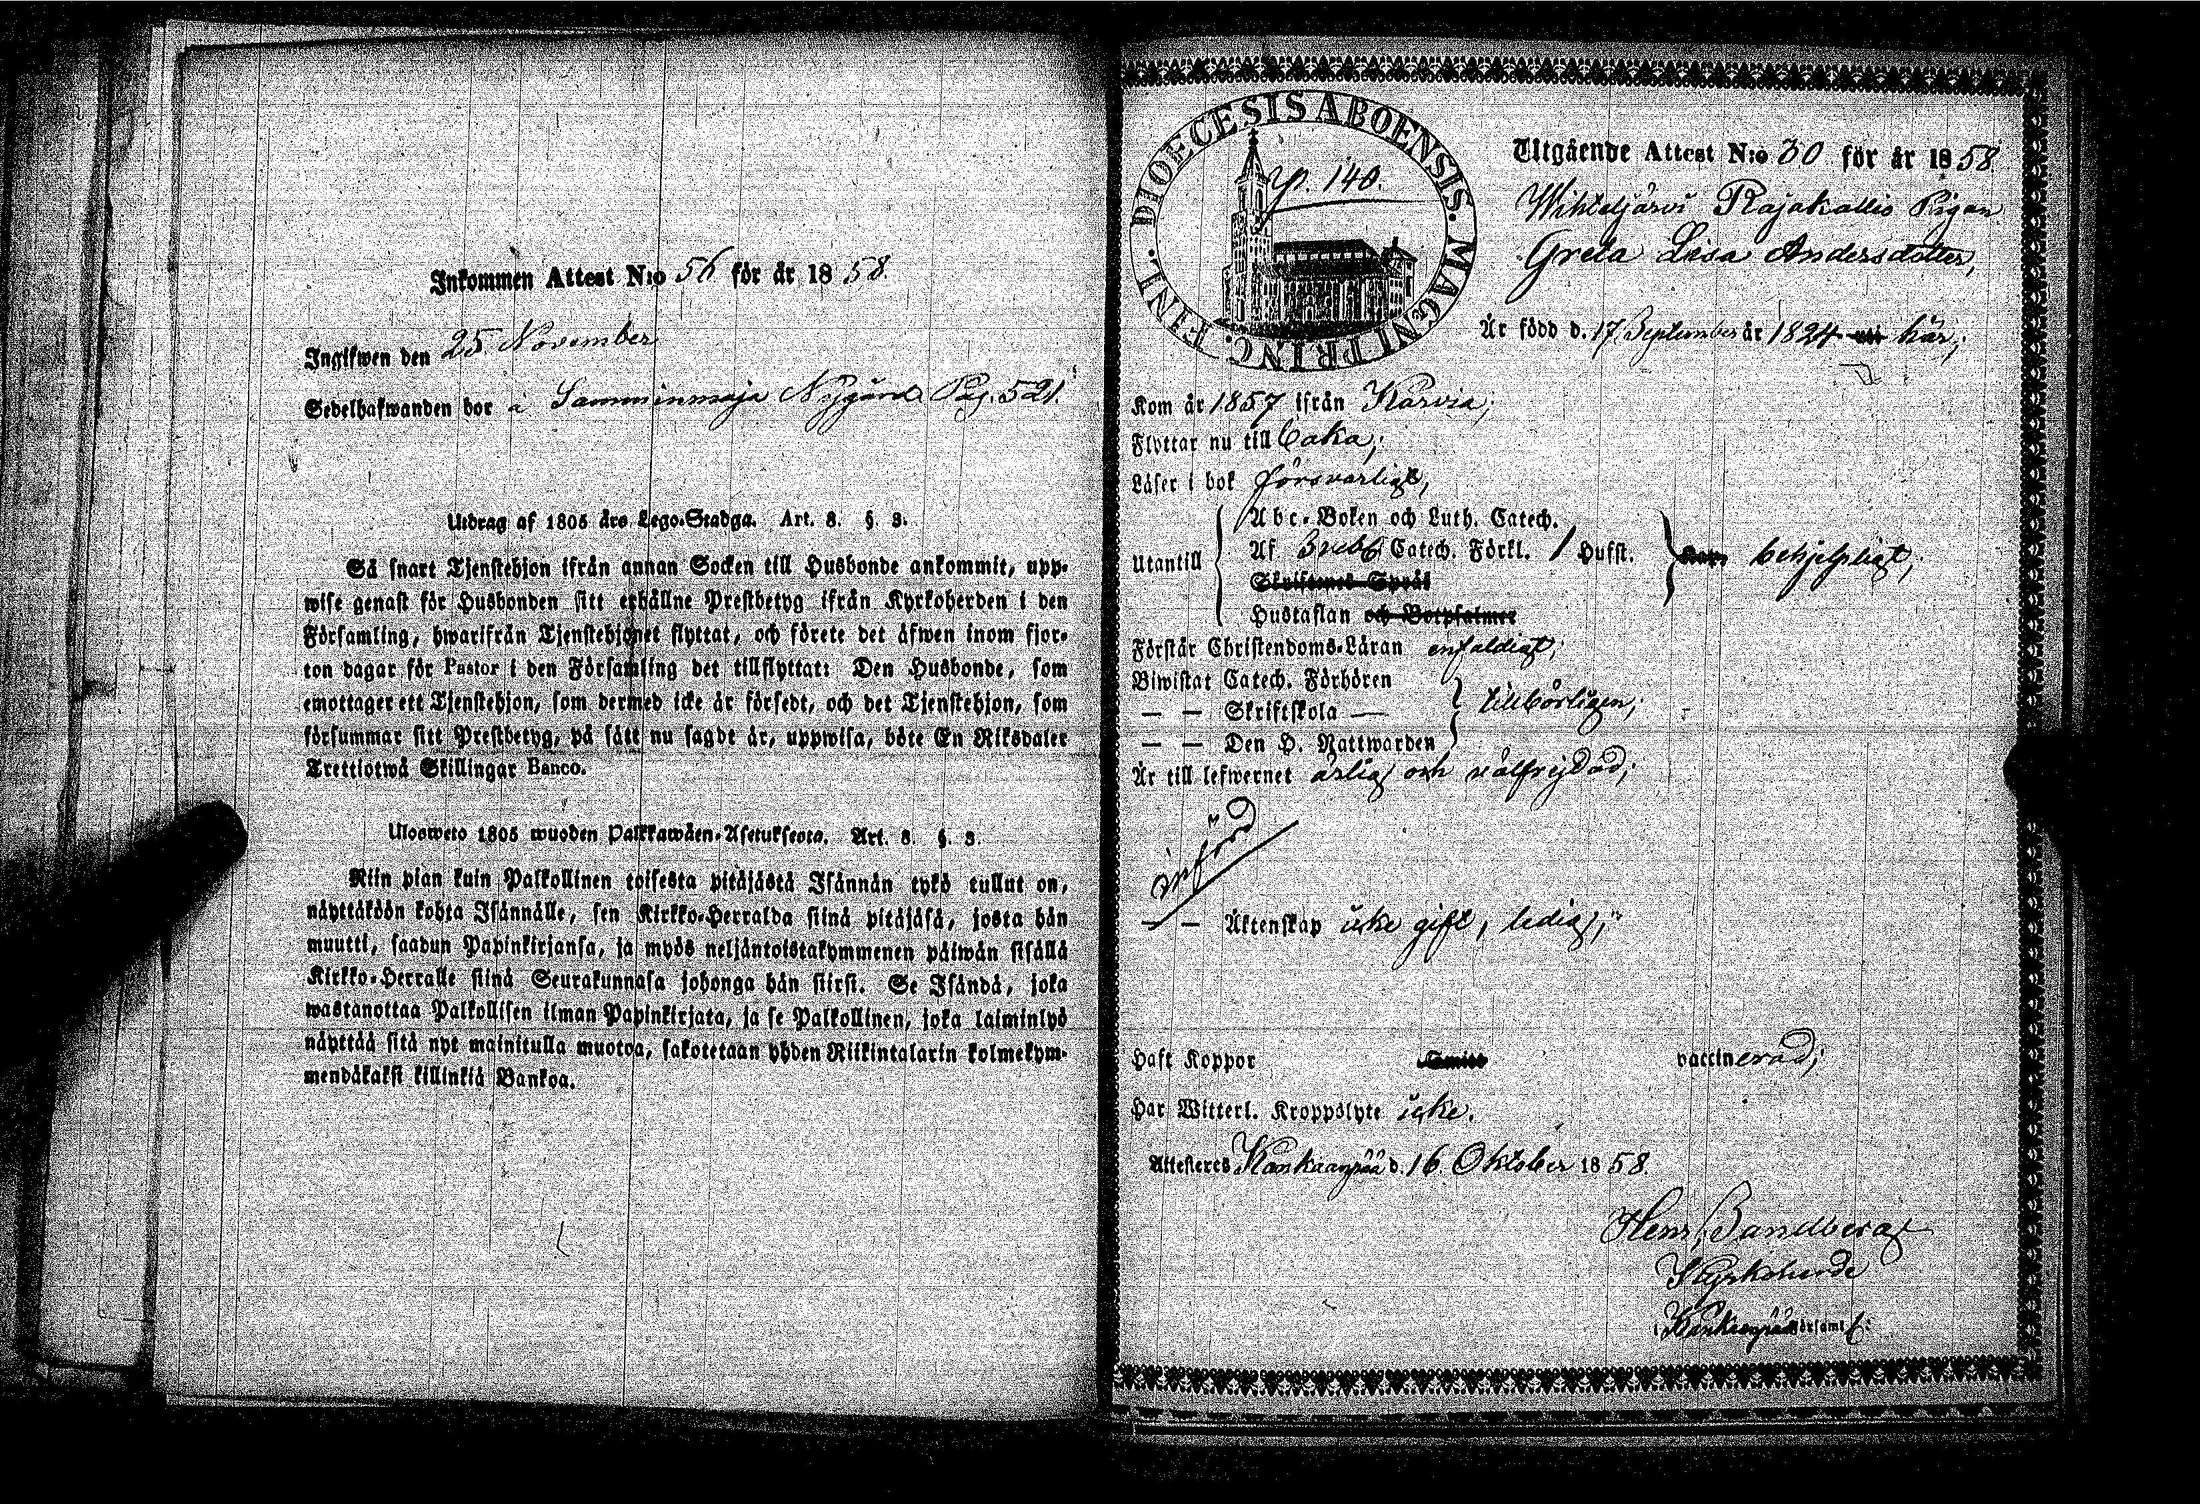 Inkommen Attest N:o 56 för år 1858.
Ingifwen den 25 November
Sedelhafwanden bor å Samminmaja Nygård Pag. 521.
Utdrag af 1805 års Lego-Stadga. Art. 8. §. 3.
Så snart Tjenstehjon ifrån annan Socken till Husbonde ankommit, upp-
wise genast för Husbonden sitt erhållne Prestbetyg ifrån Kyrkoherden i den
Församling, hwarifrån Tjenstehjonet flyttat, och förete det äfwen inom fjor-
ton dagar för Pastor i den Församling det tillflyttat: Den Husbonde, som
emottager ett Tjenstehjon, som dermed icke är försedt, och det Tjenstehjon, som
försummar sitt Prestbetyg, på sätt nu sagdt är, uppwisa, böte En Riksdaler
Trettiotwå Skillingar Banco.
Uloswето 1805 wuoden Palkkawäen-Asetuksesta. Art. 8. §. 3.
Niin pian kuin Palkollinen toisesta pitäjästä Isännän tykö tullut on,
näyttäköön kohta Isännälle, sen Kirkko-Herralda siinä pitäjäsä, josta hän
muutti, saadun Papinkirjansa, ja myös neljäntoistakymmenen päiwän sisällä
Kirkko-Herralle siinä Seurakunnasa johonga hän siirsi. Se Isändä, joka
wastanottaa Palkollisen ilman Papinkirjata, ja se Palkollinen, joka laiminlyö
näyttää sitä nyt mainitulla muotoa, sakotetaan yhden Riikintalarin kolmekym-
mendäkaksi killinkiä Bankoa.
DIOECESIS ABOENSIS. MAGNI PRINC. FINL.
p. 140.
Utgående Attest N:o 30 för år 1858.
Wihteljärvi Rajakallis Pigan
Greta Lisa Andersdotter,
Är född d. 17 September år 1824 uti här;
Kom år 1857 ifrån Karvia;
Flyttar nu till
Läser i bok försvarligt,
Utantill
Abc-Boken och Luth. Catech.
Af Sveb. Catech. Förkl. 1 Hufst. behjelpligt;
Skriftenes Språk
Hustaflan och Botpsalmer
Förstår Christendoms-Läran enfaldigt;
Biwistat Catech. Förhören
— — Skriftskola — tillbörligen;
— — Den H. Nattwarden
Är till lefwernet ärlig och välfrejdad;
införd
— — Äktenskap icke gift, ledig;
Haft Koppor vaccinerad;
Har Witterl. Kroppslyte icke.
Attesteres Kankaanpää d. 16 Oktober 1858.
Henr. Sandberg
Kyrkoherde
i Kankaanpää församl.